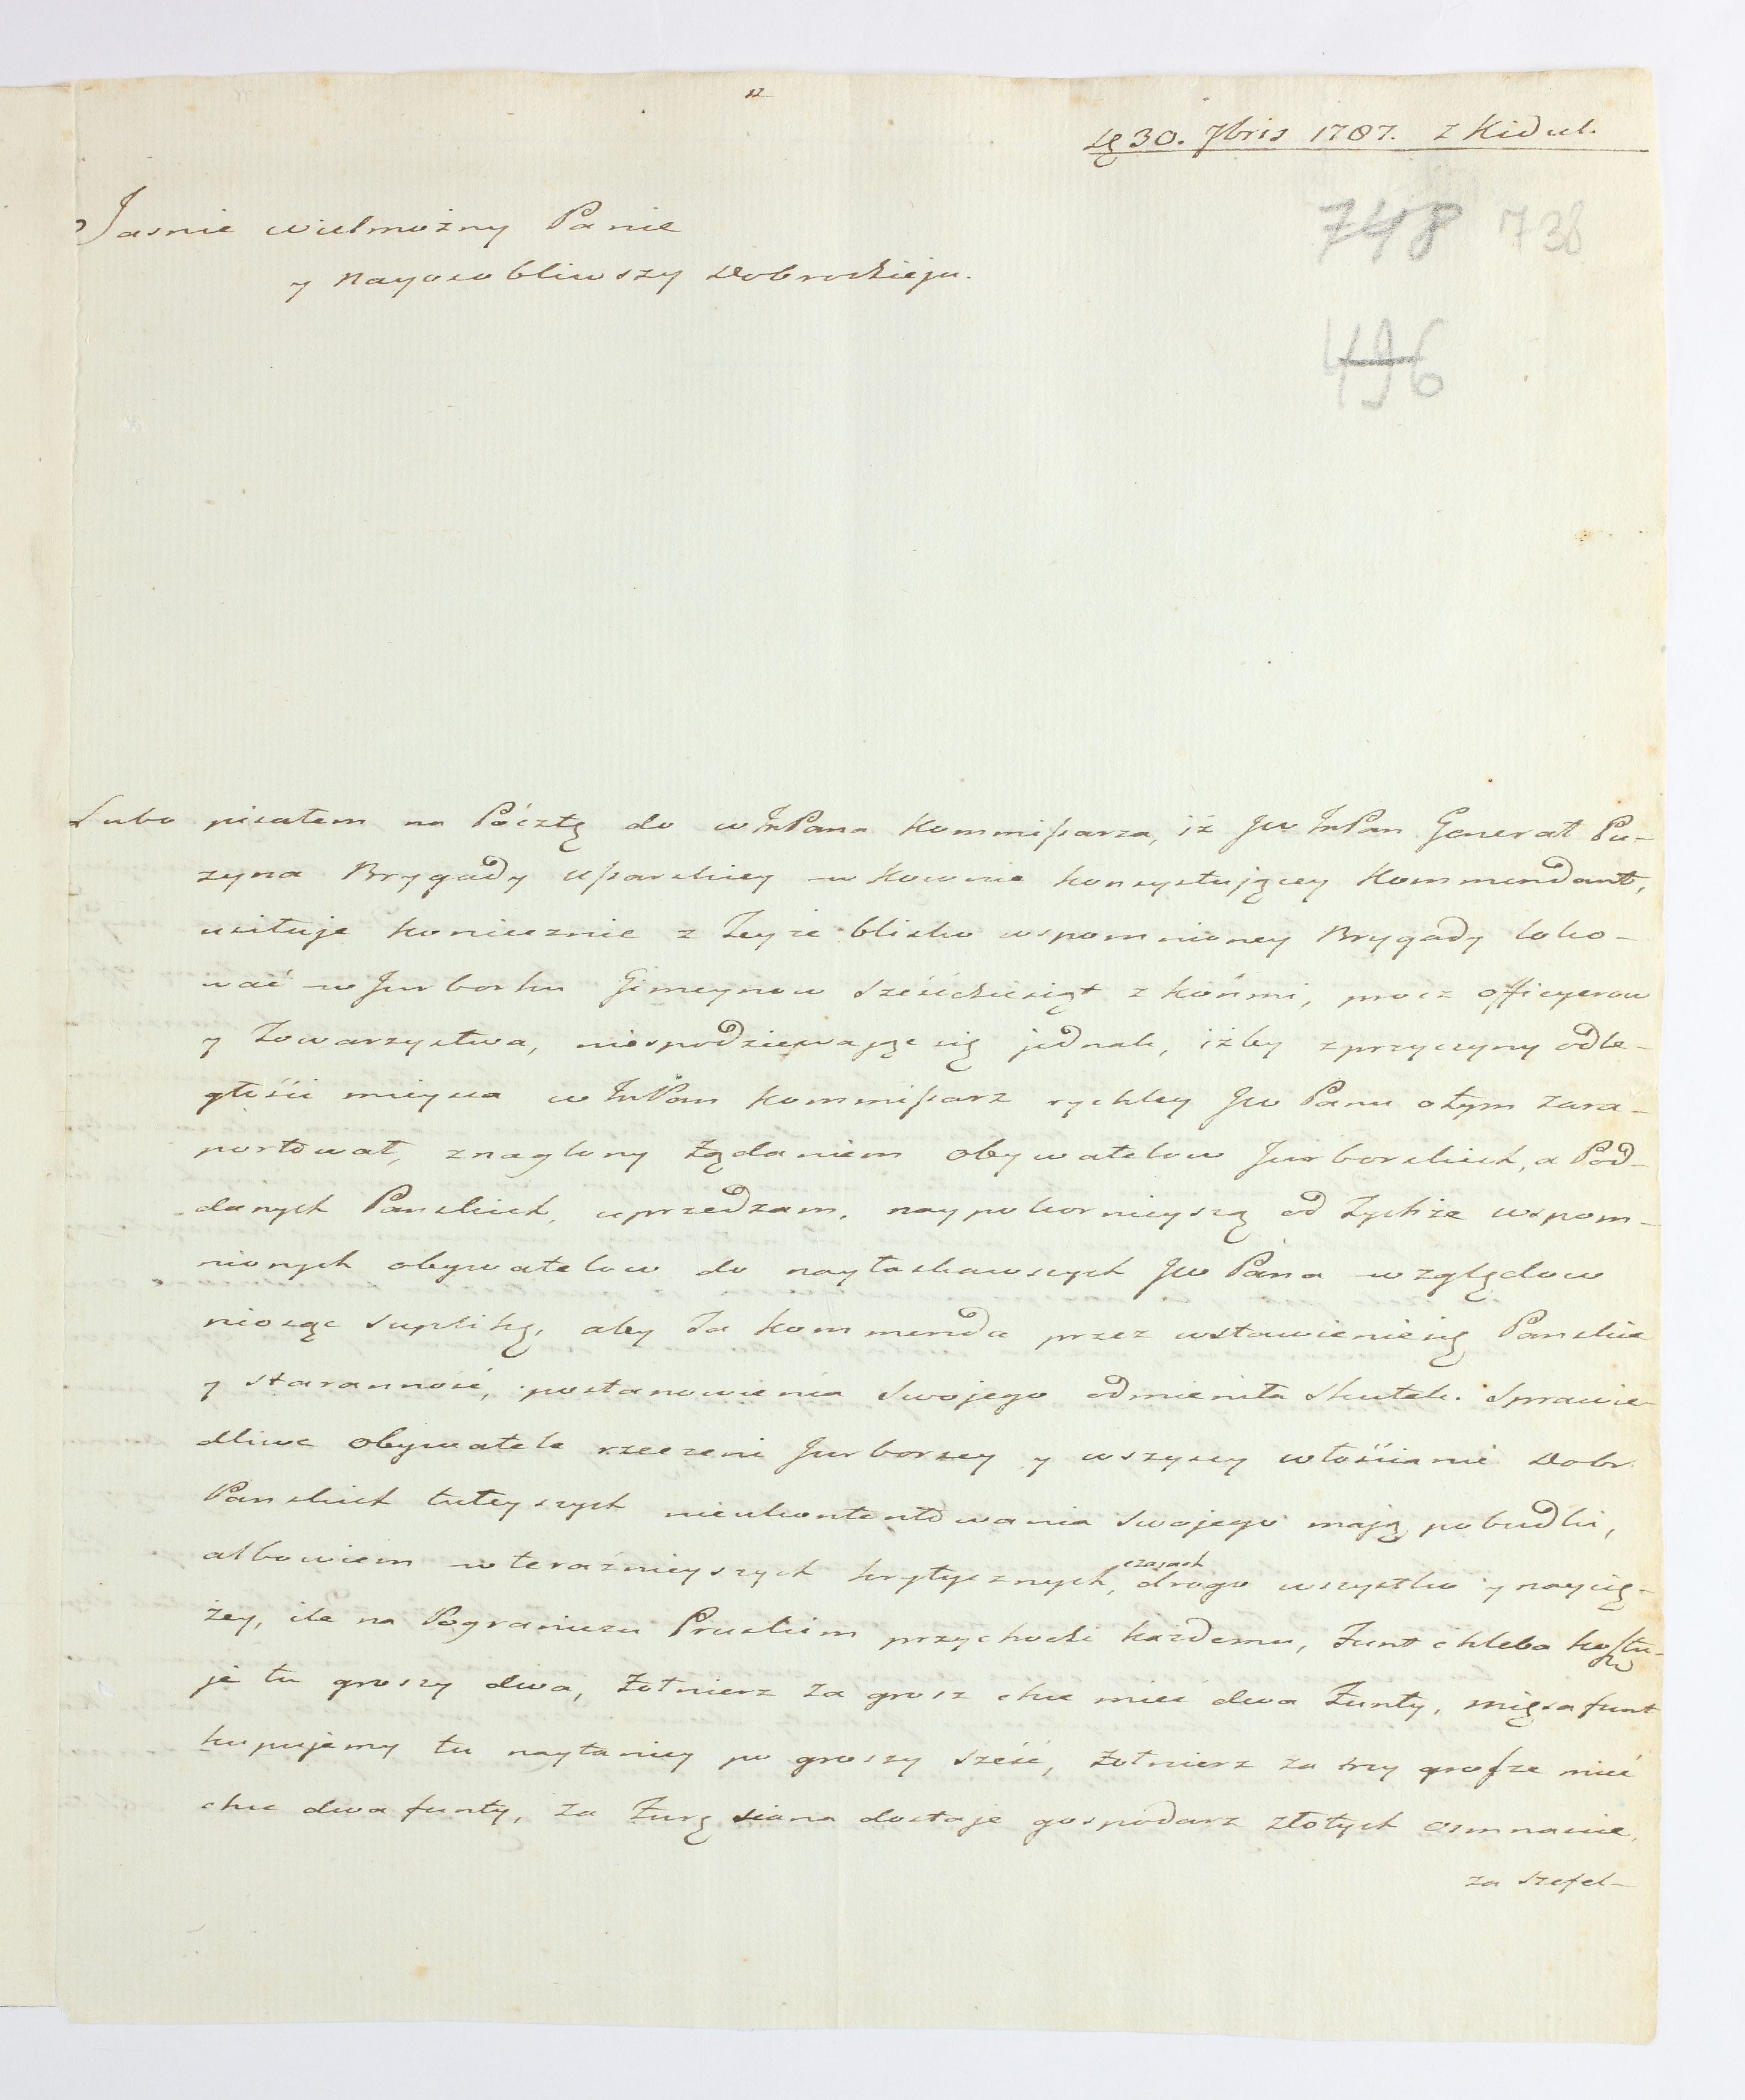 30. 7bris 1787. z Kidul.
748 738
496
Jasnie wielmożny Panie
y Nayosobliwszy Dobrodzieju.
Lubo pisałem na Pocztę do WJmPana Kommissarza, iż JW JmPan Generał Pu-
zyna Brygady Usarskiey w Kownie konsystującey Kommendant,
usiłuje koniecznie z Teyże blisko wspomnioney Brygady loko-
wać w Jurborku Gimeynow sześćdziesiąt z końmi, procz officyerow
y Towarzystwa, niespodziewając się jednak, iżby z przyczyny odle-
głości mieysca WJmPan Kommissarz rychley JW Panu o tym zara-
portował, znaglony żądaniem obywatelow Jurborskich, a Pod-
danych Panskich, uprzedzam, naypokornieyszą od Tychże wspom-
nionych obywatelow do nayłaskawszych JW Pana względow
niosąc suplikę, aby Ta Kommenda przez wstawienie się Panskie
y staranność, postanowienia swojego odmieniła skutek. Sprawie-
dliwe obywatele rzeczeni Jurborscy y wszyscy włościanie Dobr
Panskich tuteyszych nieukontentowania swojego mają pobudki,
albowiem w teraźnieyszych krytycznych, czasach drogo wszystko y naycię-
żey, ile na Pograniczu Pruskim przychodzi każdemu, Funt chleba kosztu-
je tu groszy dwa, Żołnierz za grosz chce mieć dwa Funty, mięsa funt
kupujemy tu naytaniey po groszy sześć, żołnierz za trzy grosze mieć
chce dwa funty, za Furę siana dostaje gospodarz złotych osmnaście,
za szefel-